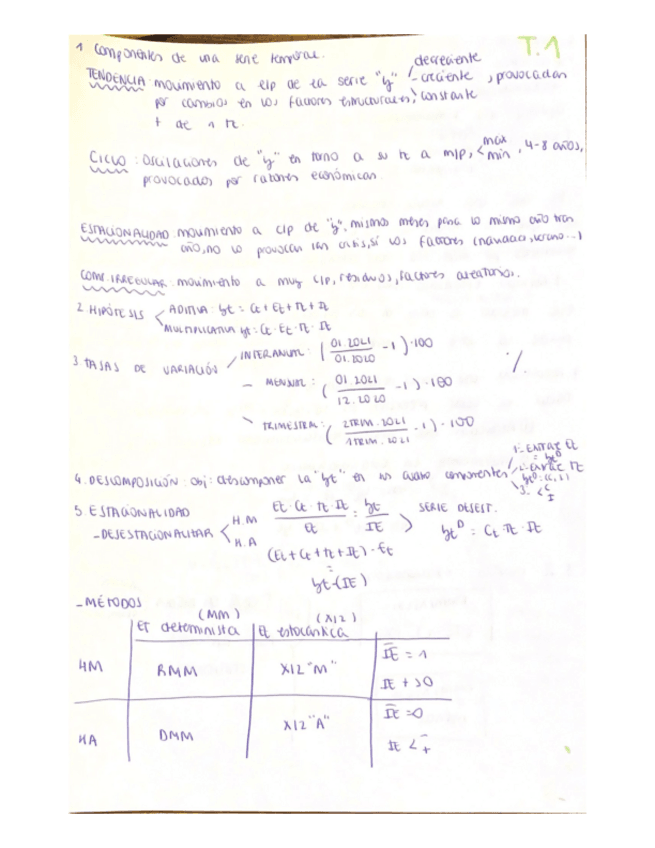 T.1
1 Componentes de una serie temporal.
TENDENCIA: movimiento a l/p de la serie "y" decreciente - creciente, constante, provocadas
por cambios en los factores estructurales,
+ de 1 Tt.
CICLO: Oscilaciones de "y" en torno a su Tt a m/p, < max min, 4-8 años,
provocados por factores económicos.
ESTACIONALIDAD movimiento a c/p de "y", mismos meses pasa lo mismo año tras
año, no lo provocan las crisis, sí los factores (navidades, verano...)
COMP. IRREGULAR: movimiento a muy c/p, residuos, factores aleatorios.
2. HIPÓTESIS < ADITIVA: yt = Ct + Et + Tt + It
MULTIPLICATIVA yt = Ct · Et · Tt · It
3 TASAS DE VARIACIÓN / INTERANUAL: (01.2021 / 01.2020 - 1) · 100 %
- MENSUAL: (01.2021 / 12.2020 - 1) · 100
\ TRIMESTRAL: (2TRIM.2021 / 1TRIM.2021 - 1) · 100
4. DESCOMPOSICIÓN: obj: descomponer la "yt" en sus cuatro componentes
1- EXTRAE Et = yt^D
2- EXTRAE Tt
3- < C I
5. ESTACIONALIDAD
- DESESTACIONALIZAR < H.M Et · Ct · Tt · It / Et = yt / IE > SERIE DESEST.
H.A (Et + Ct + Tt + It) - Et = yt - (IE)
yt^D = Ct · Tt · It
- MÉTODOS
(MM) (X12)
Et determinista Et estocástica
HM RMM X12 "M" IE = 1
IE + >0
HA DMM X12 "A" IE = 0
IE < - +